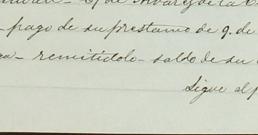 de la
pago de su prestamo de 9. de
remitidolo saldo de su
Sigue al p